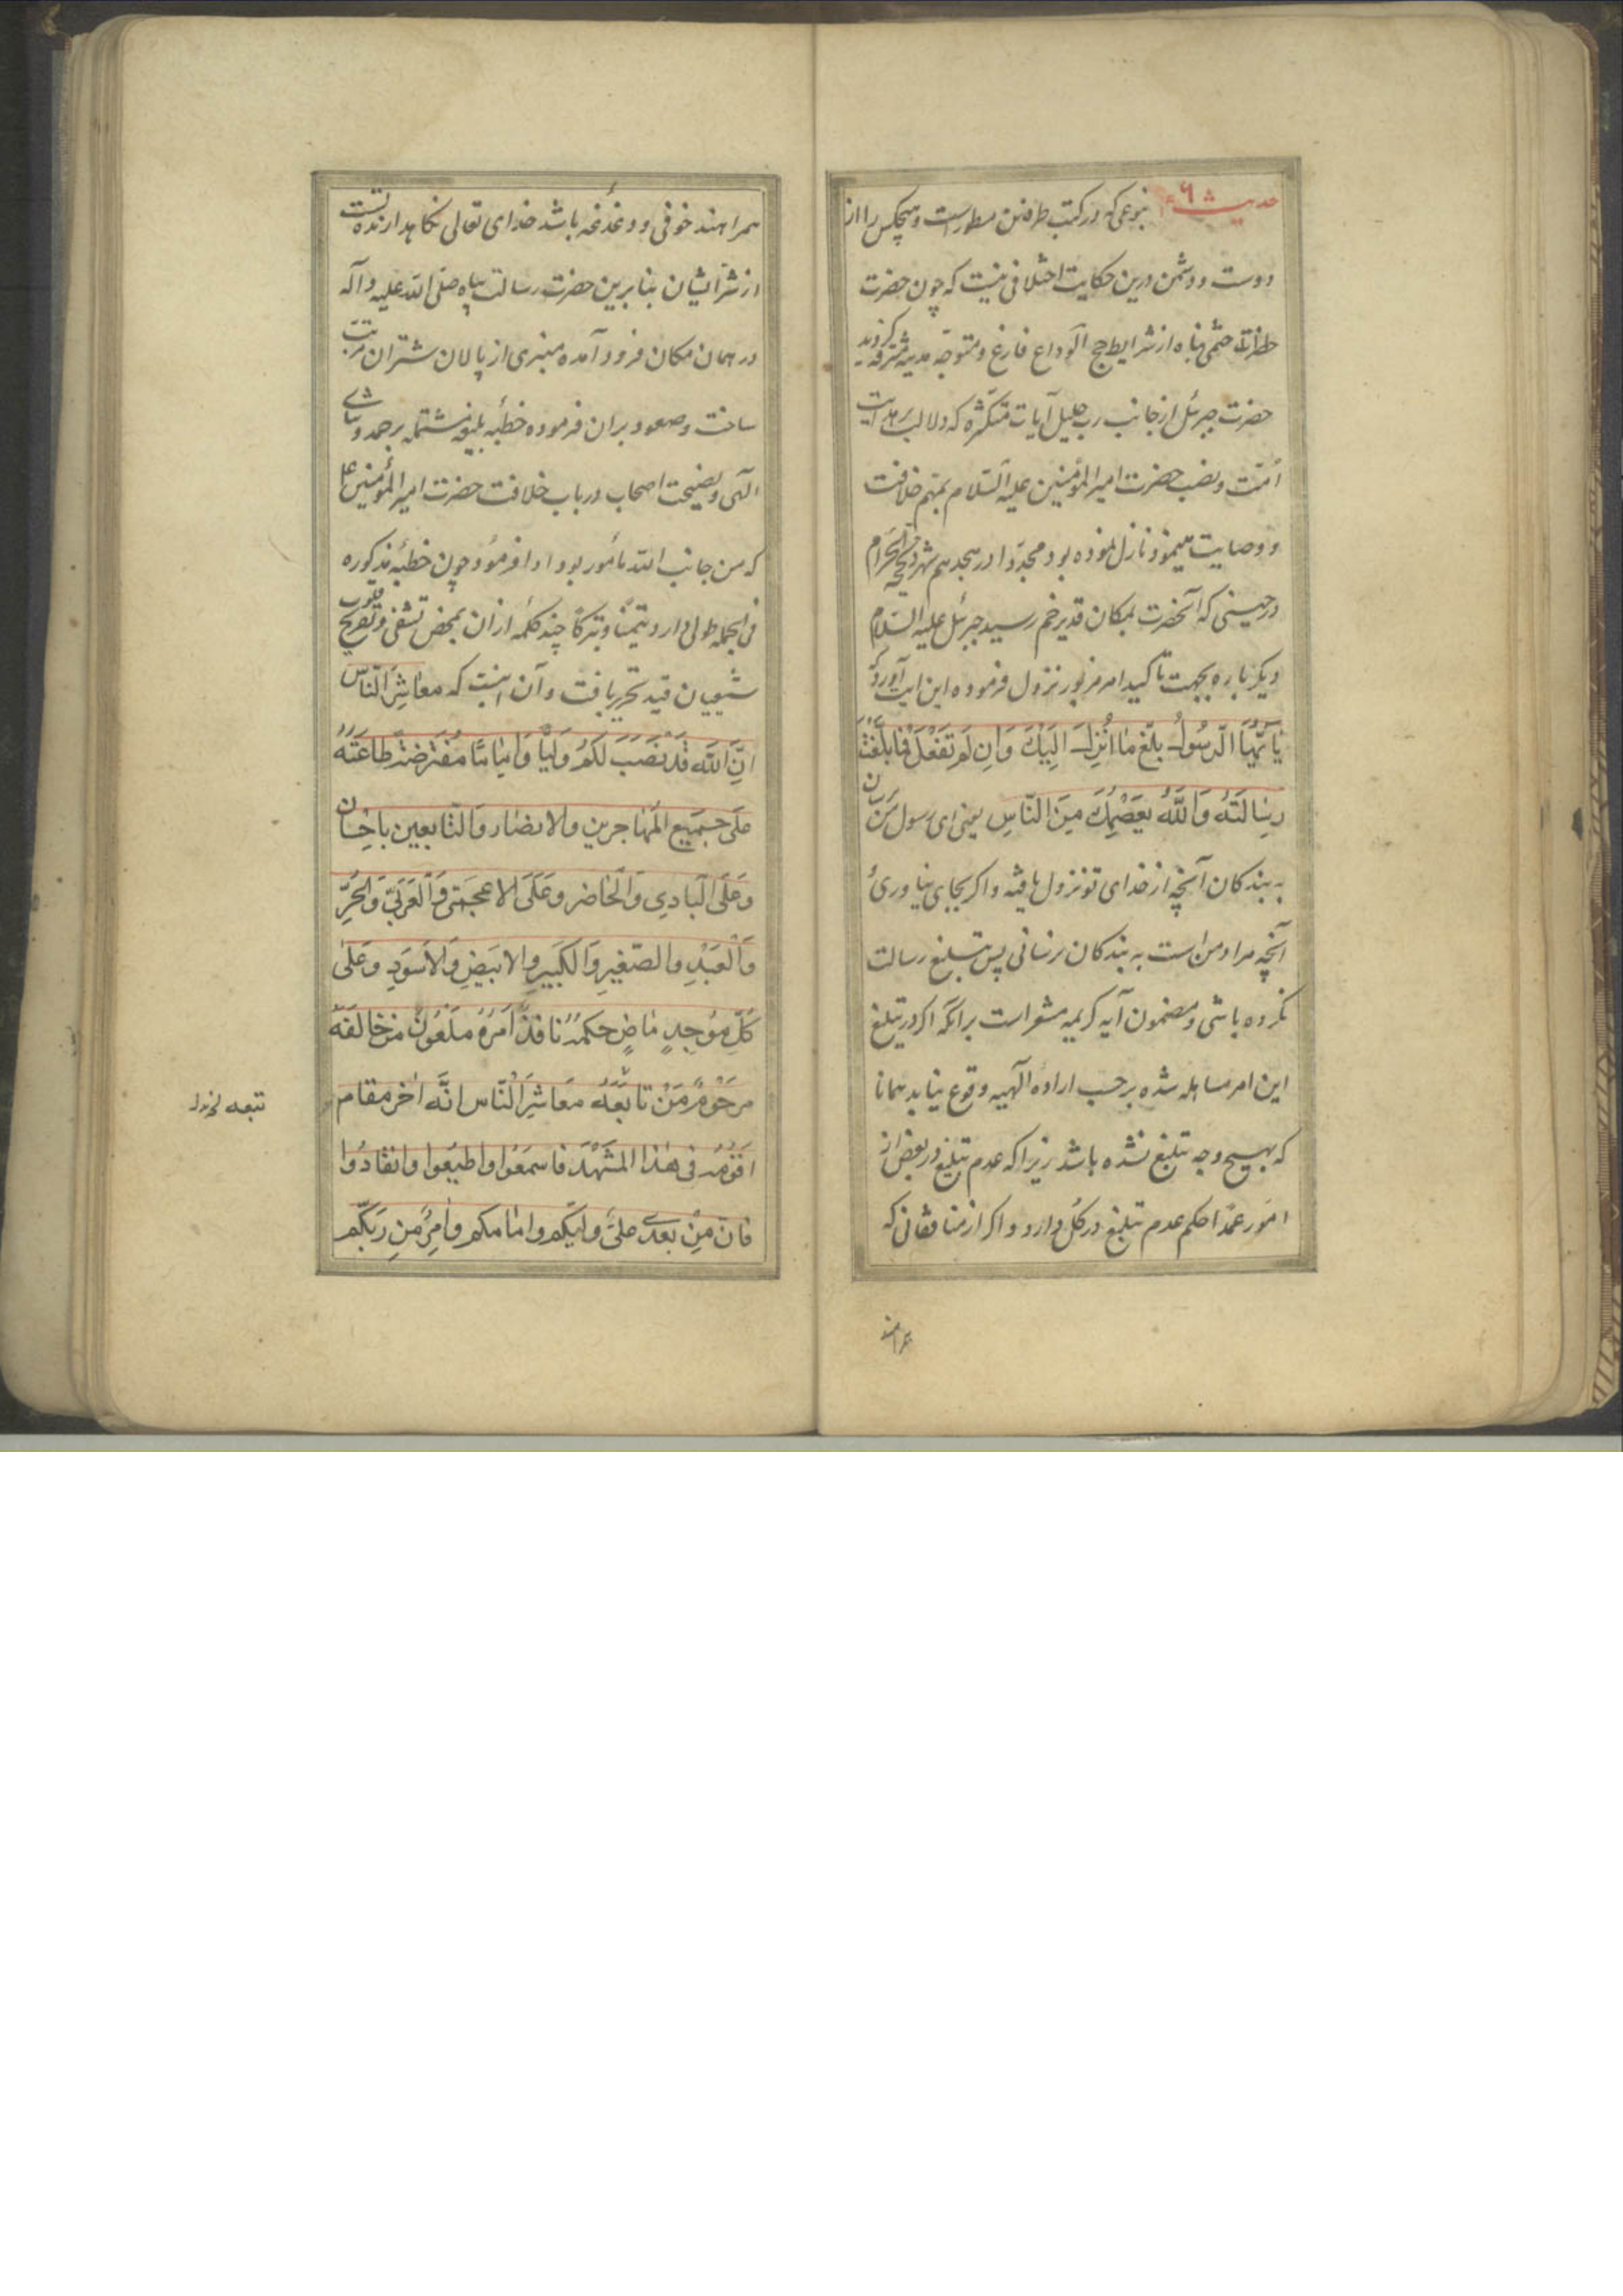 حدیث ۶ بنوعی که در کتب طرفین مسطور است و هیچکس را از
دوست و دشمن درین حکایت اختلافی نیست که چون حضرت
ختمی پناه از شرایط حج الوداع فارغ و متوجّه مدینه مشرفه کردید
حضرت جبرئیل از جانب رب جلیل آیات متکثره که دلالت بر هدایت
اُمّت و نصب حضرت امیر المؤمنین علیه السّلام بمهم خلافت
و وصایت مینمود نازل نموده بود مجدّدا در هجدهم شهر ذیحجّة الحرام
در حینی که آنحضرت بمکان قدیر خم رسید جبرئیل علیه السّلام
دیکر باره بجهت تاکید امر مزبور نزول فرموده این ایت آورد که
یَا أَیُّهَا الرَّسُولُ بَلِّغْ مَا اُنْزِلَ اِلَیْکَ وَاِن لَمْ تَفْعَلْ فَمَا بَلَّغْتَ
رِسَالَتَهُ وَاللَّهُ یَعْصِمُکَ مِنَ النَّاسِ یعنی ای رسول من برسان
به بندکان آنچه از خدای تو نزول یافته و اکر بجای نیاوری
آنچه مراد من است به بندکان نرسانی پس تبلیغ رسالت
نکرده باشی و مضمون آیه کریمه مشعر است برانکه اکر در تبلیغ
این امر مساهله شده بر حسب اراده الهیه وقوع نیابد همانا
که بهیچ وجه تبلیغ نشده باشد زیرا که عدم تبلیغ در بعض از
امور عمدا حکم عدم تبلیغ در کل دارد و اکر از منافقانی که
همراهند
همراهند خوفی و دغدغه باشد خدای تعالی نکاهدارنده تست
از شر ایشان بنا برین حضرت رسالت پناه صلی الله علیه و آله
در همان مکان فرود آمده منبری از پالان شتران مرتب
ساخت و صعود بران فرموده خطبه بلیغه مشتمله بر حمد و ثنای
الهی و نصیحت اصحاب در باب خلافت حضرت امیر المؤمنین ع
که من جانب الله مأمور بود ادا فرمود و چون خطبه مذکوره
فی الجمله طولی دارد تیمّنا و تبرکا چند کلمه ازان بمحض تشفی و تفریح قلوب
شیعیان قید تحریر یافت و آن اینست که مَعَاشِرَ النَّاسِ
اِنَّ اللَّهَ قَدْ نَصَبَ لَکُمْ وَلِیًّا وَاِمَامًا مُفْتَرَضَةً طَاعَتُهُ
عَلَی جَمِیعِ الْمُهَاجِرِین والانصار وَالتَّابعین باحسان
وَعَلَی الْبَادِی وَالْحَاضِر وَعَلَی الاعجمی وَالْعَرَبِیِّ وَالْحُرِّ
وَالْعَبْدِ والصّغیرِ وَالکَبیرِ والابیَضِ وَالاَسوَدِ وَعَلَی
کُلِّ مُوجِدٍ مَاضٍ حکمُهُ نَافِذٌ اَمرُهُ مَلْعُونٌ مَن خَالَفَهُ
مَرْحُومٌ مَنْ تَابَعَهُ مَعَاشِرَ النَّاس اِنَّه اخر مقام
اَقُومُهُ فی هَذَا المَشْهَدِ فَاسمَعُوا وَاَطیعُوا وَانقَادُوا
فَاِنَّ مِنْ بَعْدِی عَلِیّ وَلیّکم وامامکم وامرٌ مِن رَبِّکُم